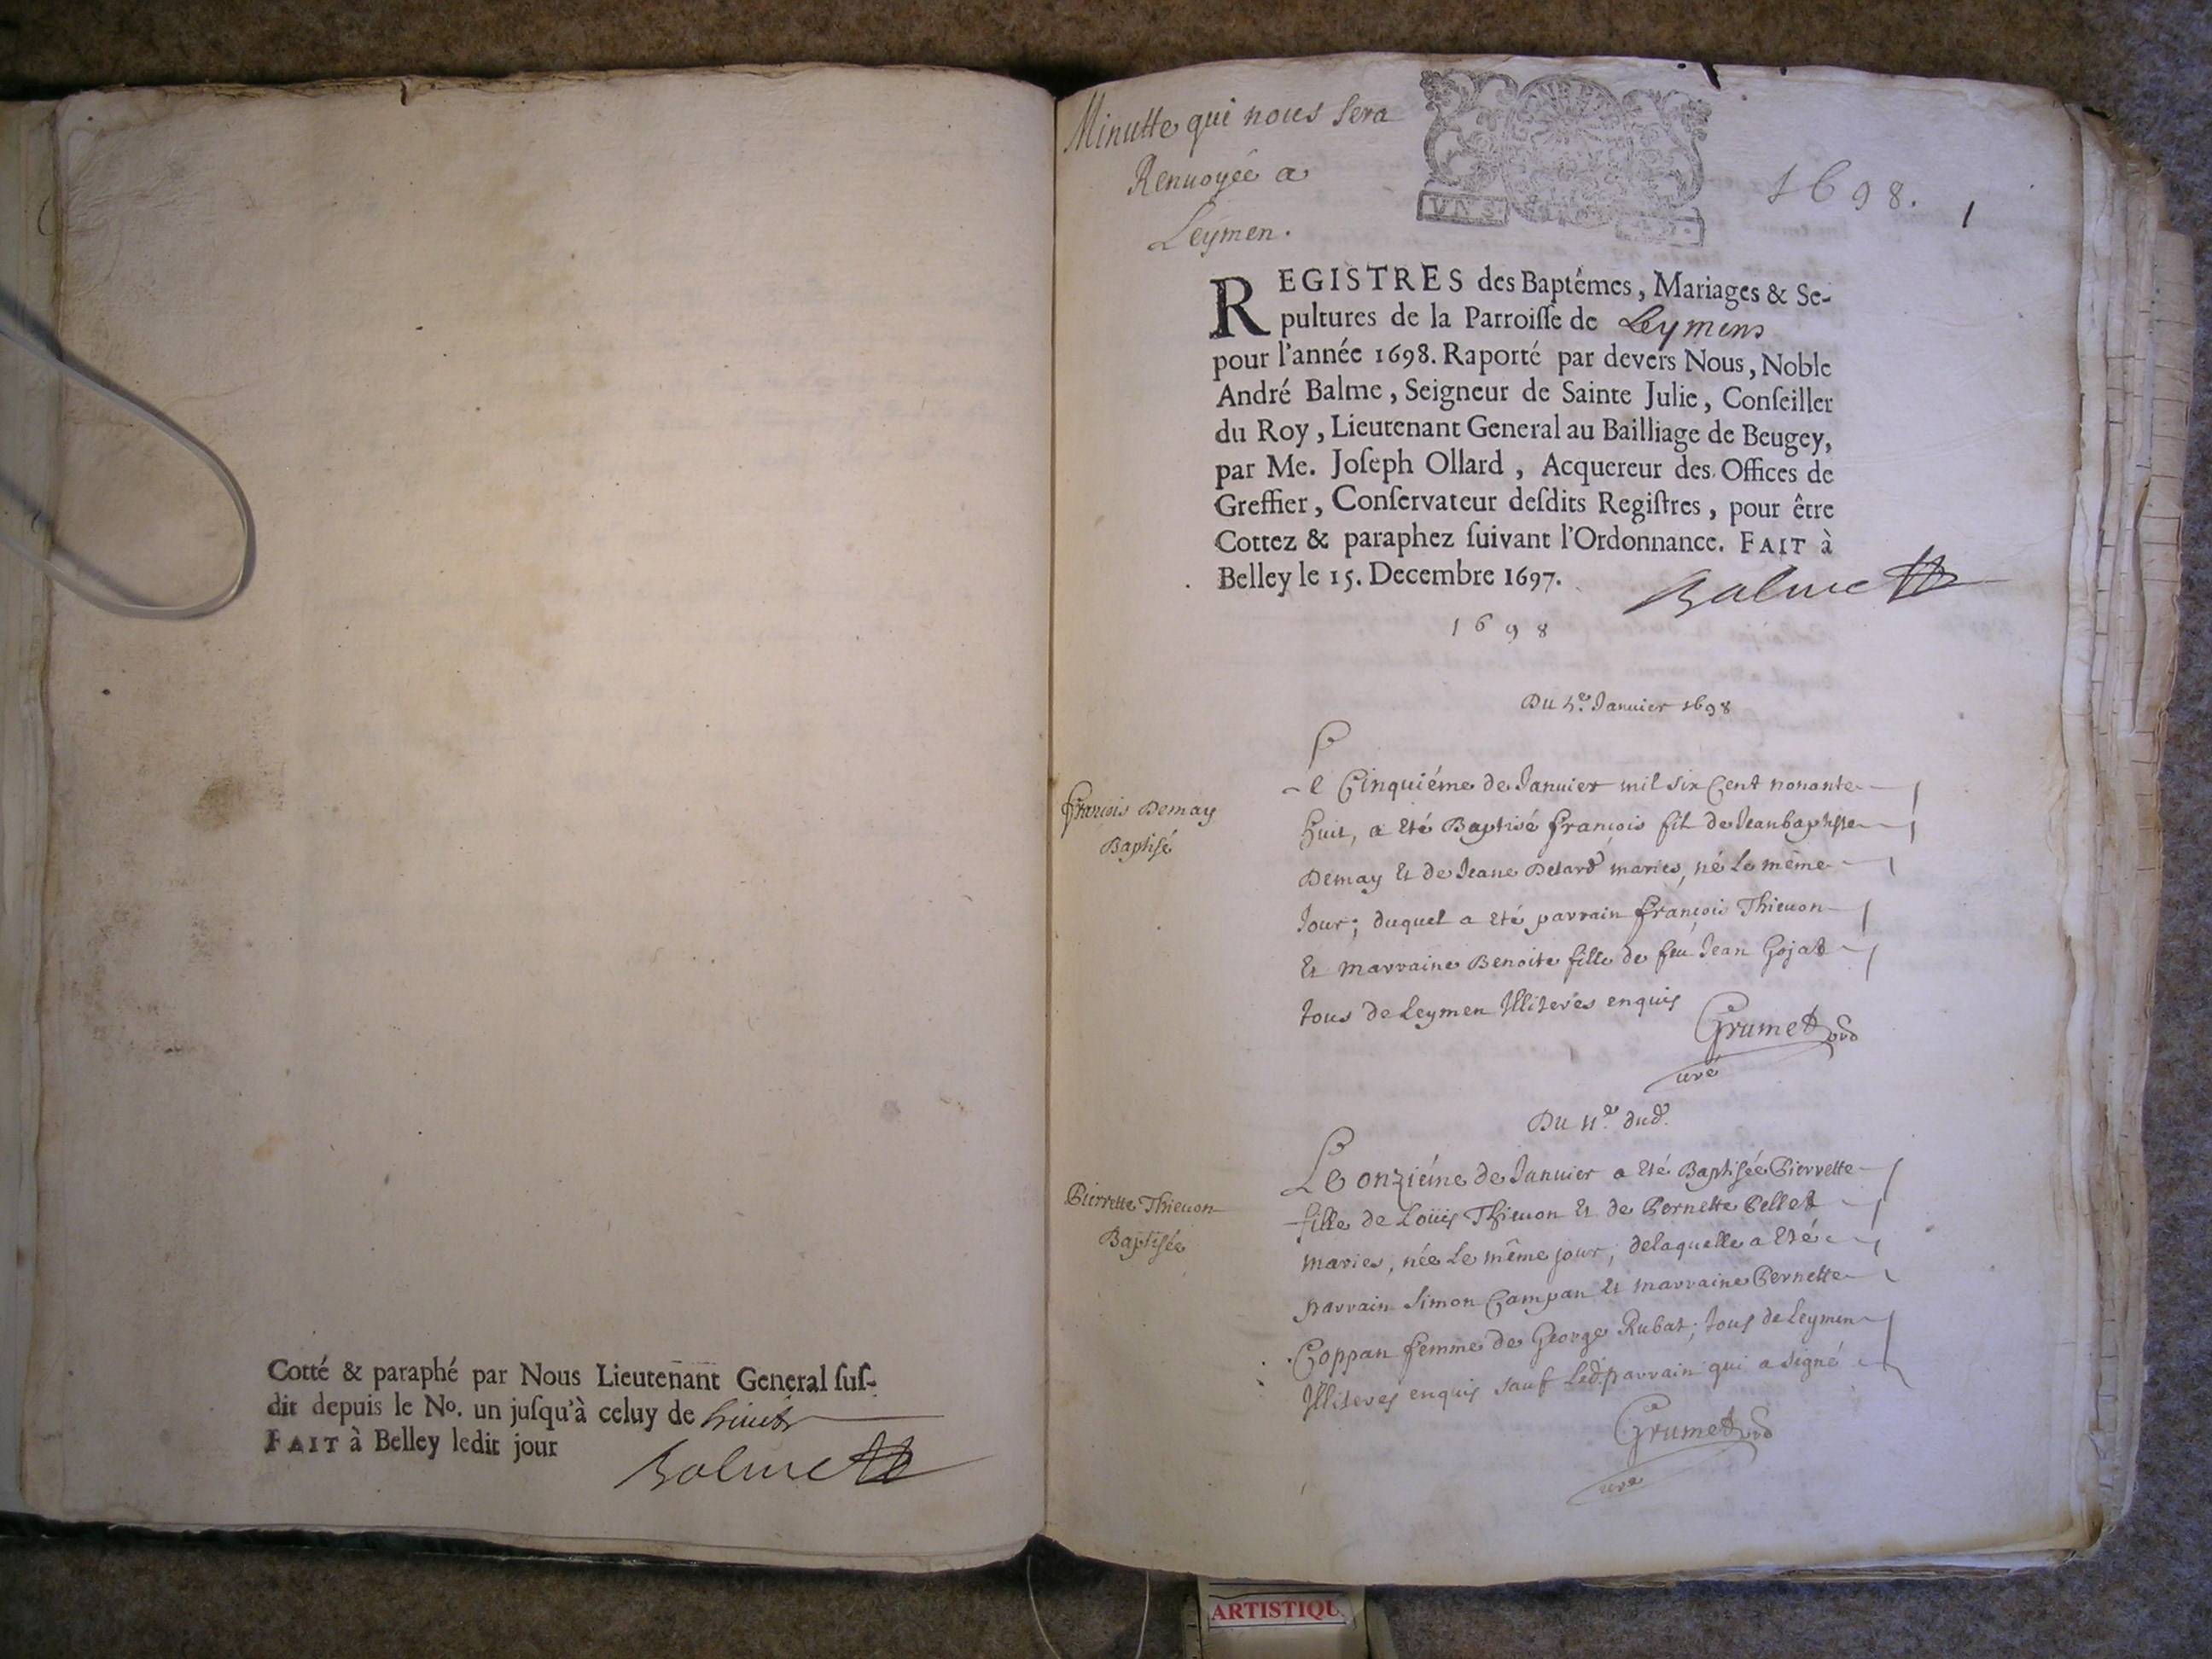 Cotté & paraphé par Nous Lieutenant General suſ-
dit depuis le No. un juſqu'à celuy de
FAIT à Belley ledit jour
Balme
Minutte qui nous sera
Renuoyée a
Leymen.
1698. 1
REGISTRES des Baptêmes, Mariages & Se-
pultures de la Parroiſſe de Leymens
pour l'année 1698. Raporté par devers Nous, Noble
André Balme, Seigneur de Sainte Julie, Conſeiller
du Roy, Lieutenant General au Bailliage de Beugey,
par Me. Joſeph Ollard, Acquereur des Offices de
Greffier, Conſervateur deſdits Regiſtres, pour être
Cottez & paraphez ſuivant l'Ordonnance. FAIT à
Belley le 15. Decembre 1697.
Balme
1698
Du 5e. Januier 1698
François Demay
Baptisé
Le Cinquiéme de Januier mil six Cent nonante
huit, a Eté Baptisé François fil de Jeanbaptiste
Demay Et de Jeane maries, né Le même
Jour; duquel a Eté parrain François Thieuon
Et marraine Benoite fille de feu Jean Gojat
tous de Leymen Illiterés enquis
Grumet
curé
Du 11e. dud.
Pierrette Thieuon
Baptisée
Le onziéme de Januier a Eté Baptisée Pierrette
fille de Loüis Thieuon Et de Pernette Pellet
maries, née Le même jour; delaquelle a Eté
parrain Simon Campan Et marraine Pernette
Coppan femme de George Rubat; tous de Leymen
Illiteres enquis sauf Led. parrain qui a signé
Grumet
curé
ARTISTIQU